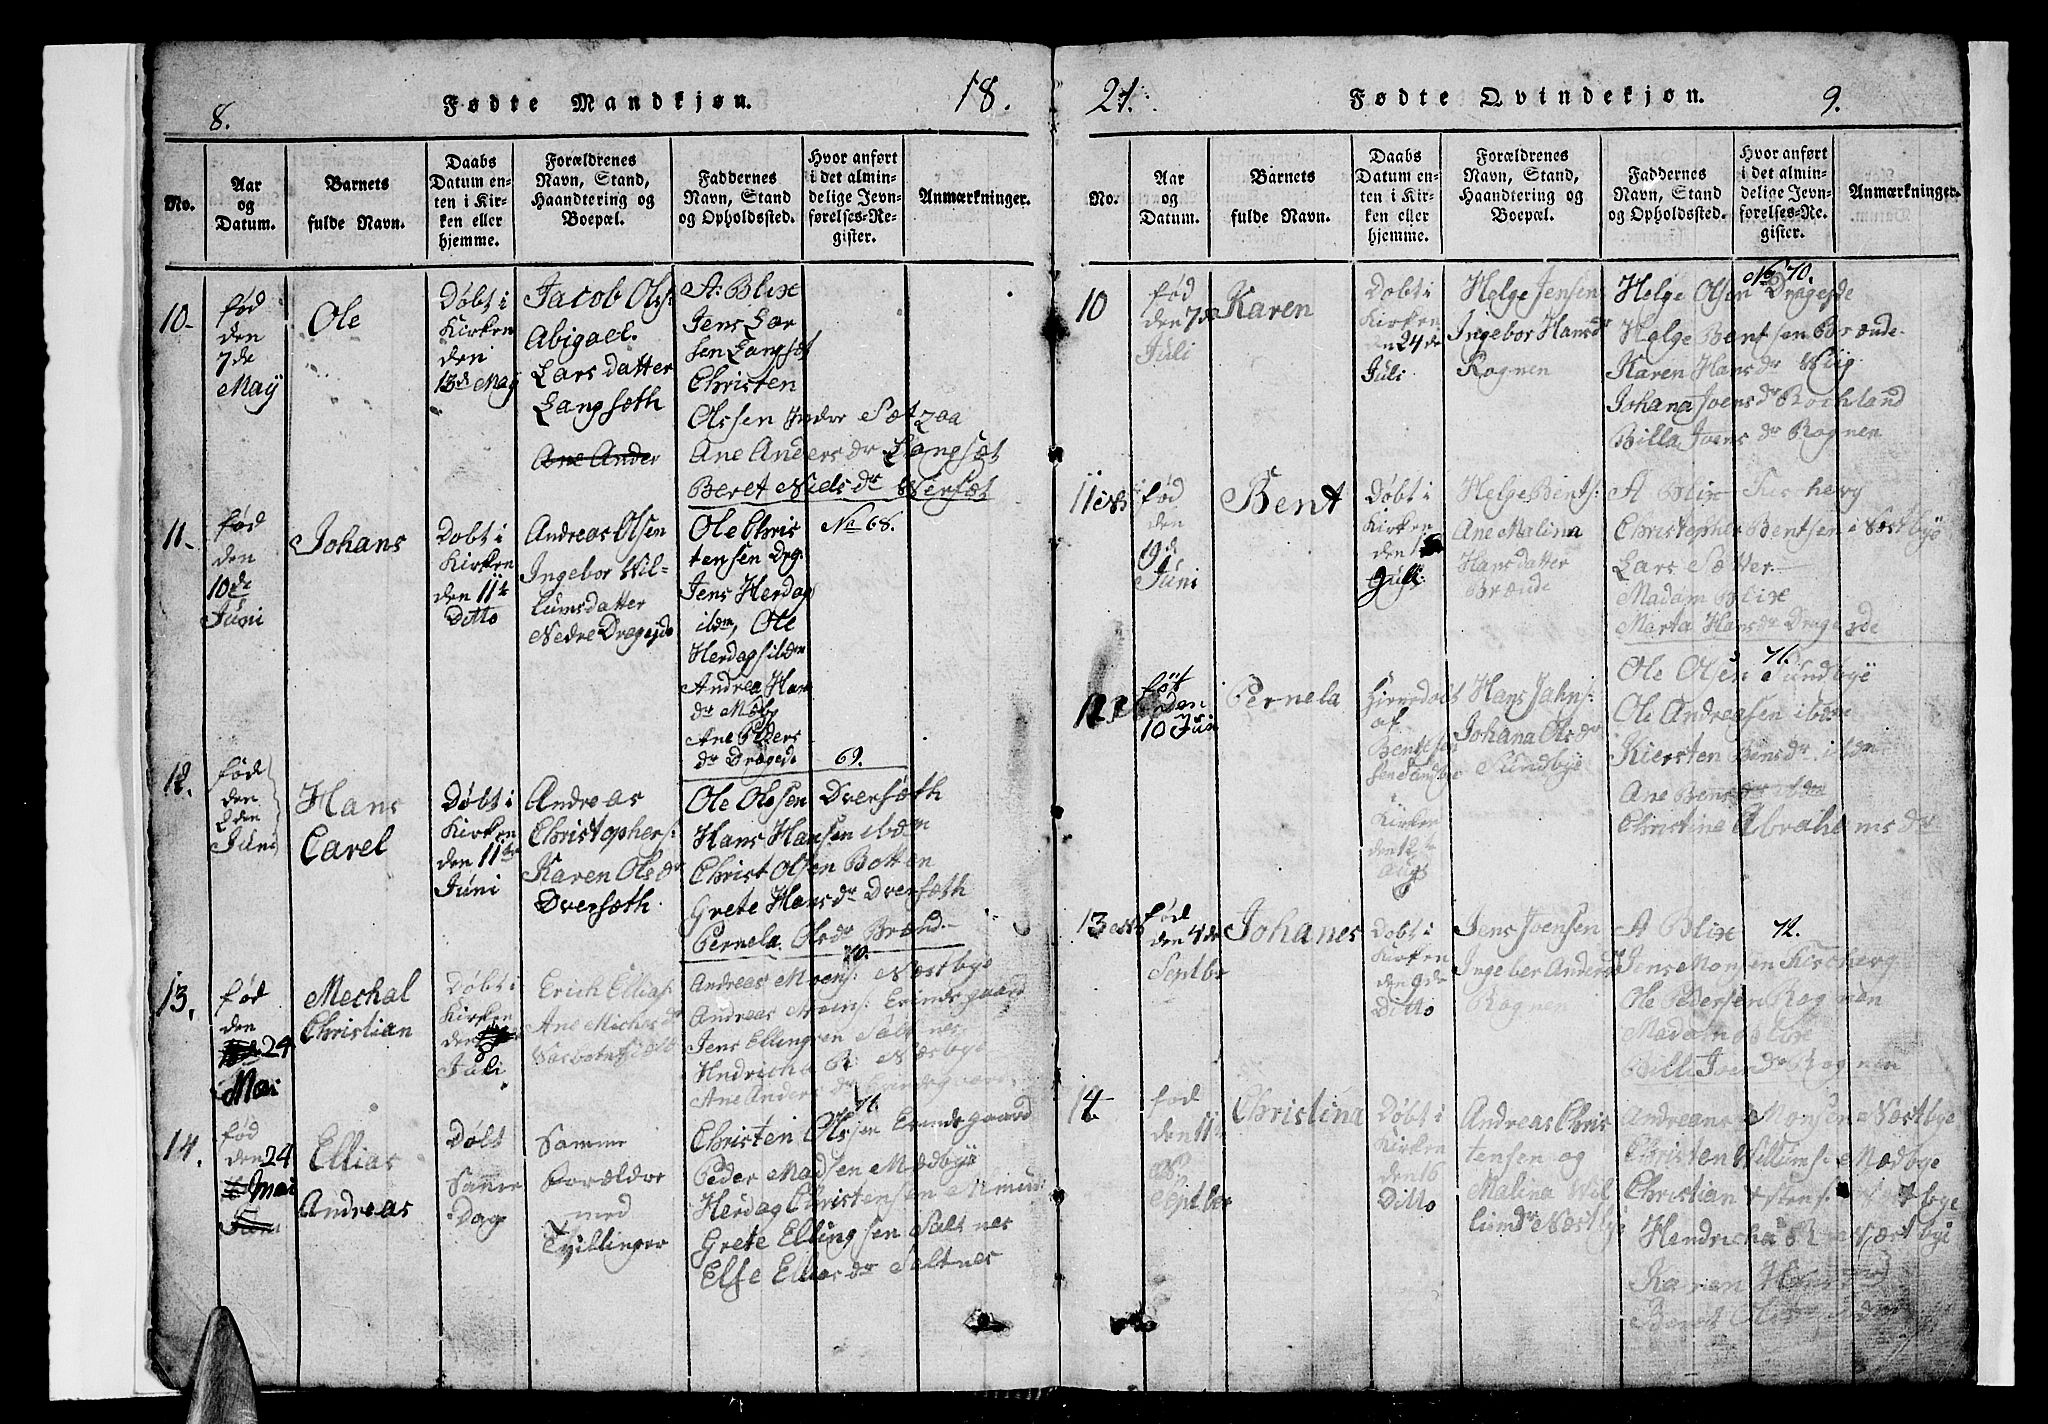 8.
Fødte Mandkjøn.
18.
No.
Aar
og
Datum.
Barnets
fulde Navn.
Daabs
Datum en-
ten i Kir-
ken eller
hjemme.
Forældrenes
Navn, Stand,
Haandtering og
Boepæl.
Faddernes
Navn, Stand
og Opholdssted.
Hvor anført
i det almin-
delige Jevn-
førelses-Re-
gister.
Anmærkninger.
10-
fød
den
7de
Maÿ
Ole
Døbt i
Kirken
den
13de Maÿ
Jacob Ols:
Abigael
Lars datter
Langsæth
Ane Ander
A: Blix
Jens Lar
sen Langsæt
Christen
Olssen
Ane Anders dr Langsæt
Beret Niels dr
11-
fød
den
10de
Juni
Johans
Døbt i
Kirken
den 11te
Ditto
Andreas Olsen
Ingebor Wil-
lumsdatter
Nedre Dragejde
Ole Chris
tensen Drg:
Jens Herdag
ibdm, Ole
Herdags ibdm
Andrea Han
dr Mæby
Ane Peders
dr Dragede
No 68.
12.
fød
den
den
Juni
Hans
Carel
Døbt i
Kirken
den 11te
Juni
Andreas
Christophers:
Karen Ols dr
Dversæth
69.
Ole Olssen Dversæth
Hans Hansen ibdm
Christ Olsen Botten
Grete Hans dr Dversæth
Pernela Ols dr Brænd
13.
fød
den
24
Mai
Mechal
Christian
Døbt i
Kirken
den
Juli
Erich Ellias:
Ane Michels dr
70.
Andreas Moens: Næstbye
Andreas Moens: Evindsgaard
Jens Ellingsen Saltnes
Hndricha R: Næsbye
Ane Anders dr Evindsgaard
14.
fød
den 24
Mai
Ellias
Andreas
Døbt
Samme
Dag
Samme
Forældre
med
Tvillinger
71.
Christen Olssen Evindsgaard
Peder Madsen Mædbyë
Herdag Christensen
Grete Ellingsen Saltnes
Else Ellias dr Saltnes
21.
Fødte Qvindekjøn.
9.
No.
Aar
og
Datum.
Barnets
fulde Navn.
Daabs
Datum en-
ten i Kir-
ken eller
hjemme.
Forældrenes
Navn, Stand,
Haandtering og
Boepæl.
Faddernes
Navn, Stand
og Opholdssted.
Hvor anført
i det almin-
delige Jevn-
førelses-Re-
gister.
Anmærkninger.
10
fød
den 7de
Juli
Karen
Døbt i
Kirken
den 24de
Juli
Helge Jensen
Ingebor Hansdr
Rognen
No 70.
Helge Olsen Dragejde
Helge Bentsen Brænde
Karen Hans dr Wiig
Johana Joens dr Rochland
Billa Joens dr Rognen
11
fød
den
19de
Juni
Bent
Døbt i
Kirken
den
Juli
Helge Bents:
Ane Malina
Hansdatter
Brænde
A Blix
Christopher Bentsen i Næstbyë
Lars Sætter
Madam Blix
Marta Hans dr Dragejde
12
føt
den
10 Juni
Pernela
Hiemdøbt
af
Bent
i
Kirken
den 12te
Aug
Hans Jahns:
Johana Ols dr
Sundbye
71.
Ole Olsen Sundbyë
Ole Andreasen ibdm
Kiersten Bens dr ibdm
Ane Bens dr ibdm
Christine Abrahams dr
13
fød
den 4de
Septbr
Johanes
Døbt i
Kirken
den 9de
Ditto
Jens Joensen
Ingeber Anders
Rognen
A Blix
72.
Jens Monsen
Ole Pedersen Rognen
Madam Blix
Billi Joen dr Rognen
14
fød
den 11te
Septber
Christina
Døbt i
Kirken
den 16
Ditto
Andreas Chris
tensen og
Malina Wil
liums dr Næstbye
Andreas Monsen Næstbye
Christen Willums: Mædbye
Christian
Hendricha R Næstbye
Karen
Berit